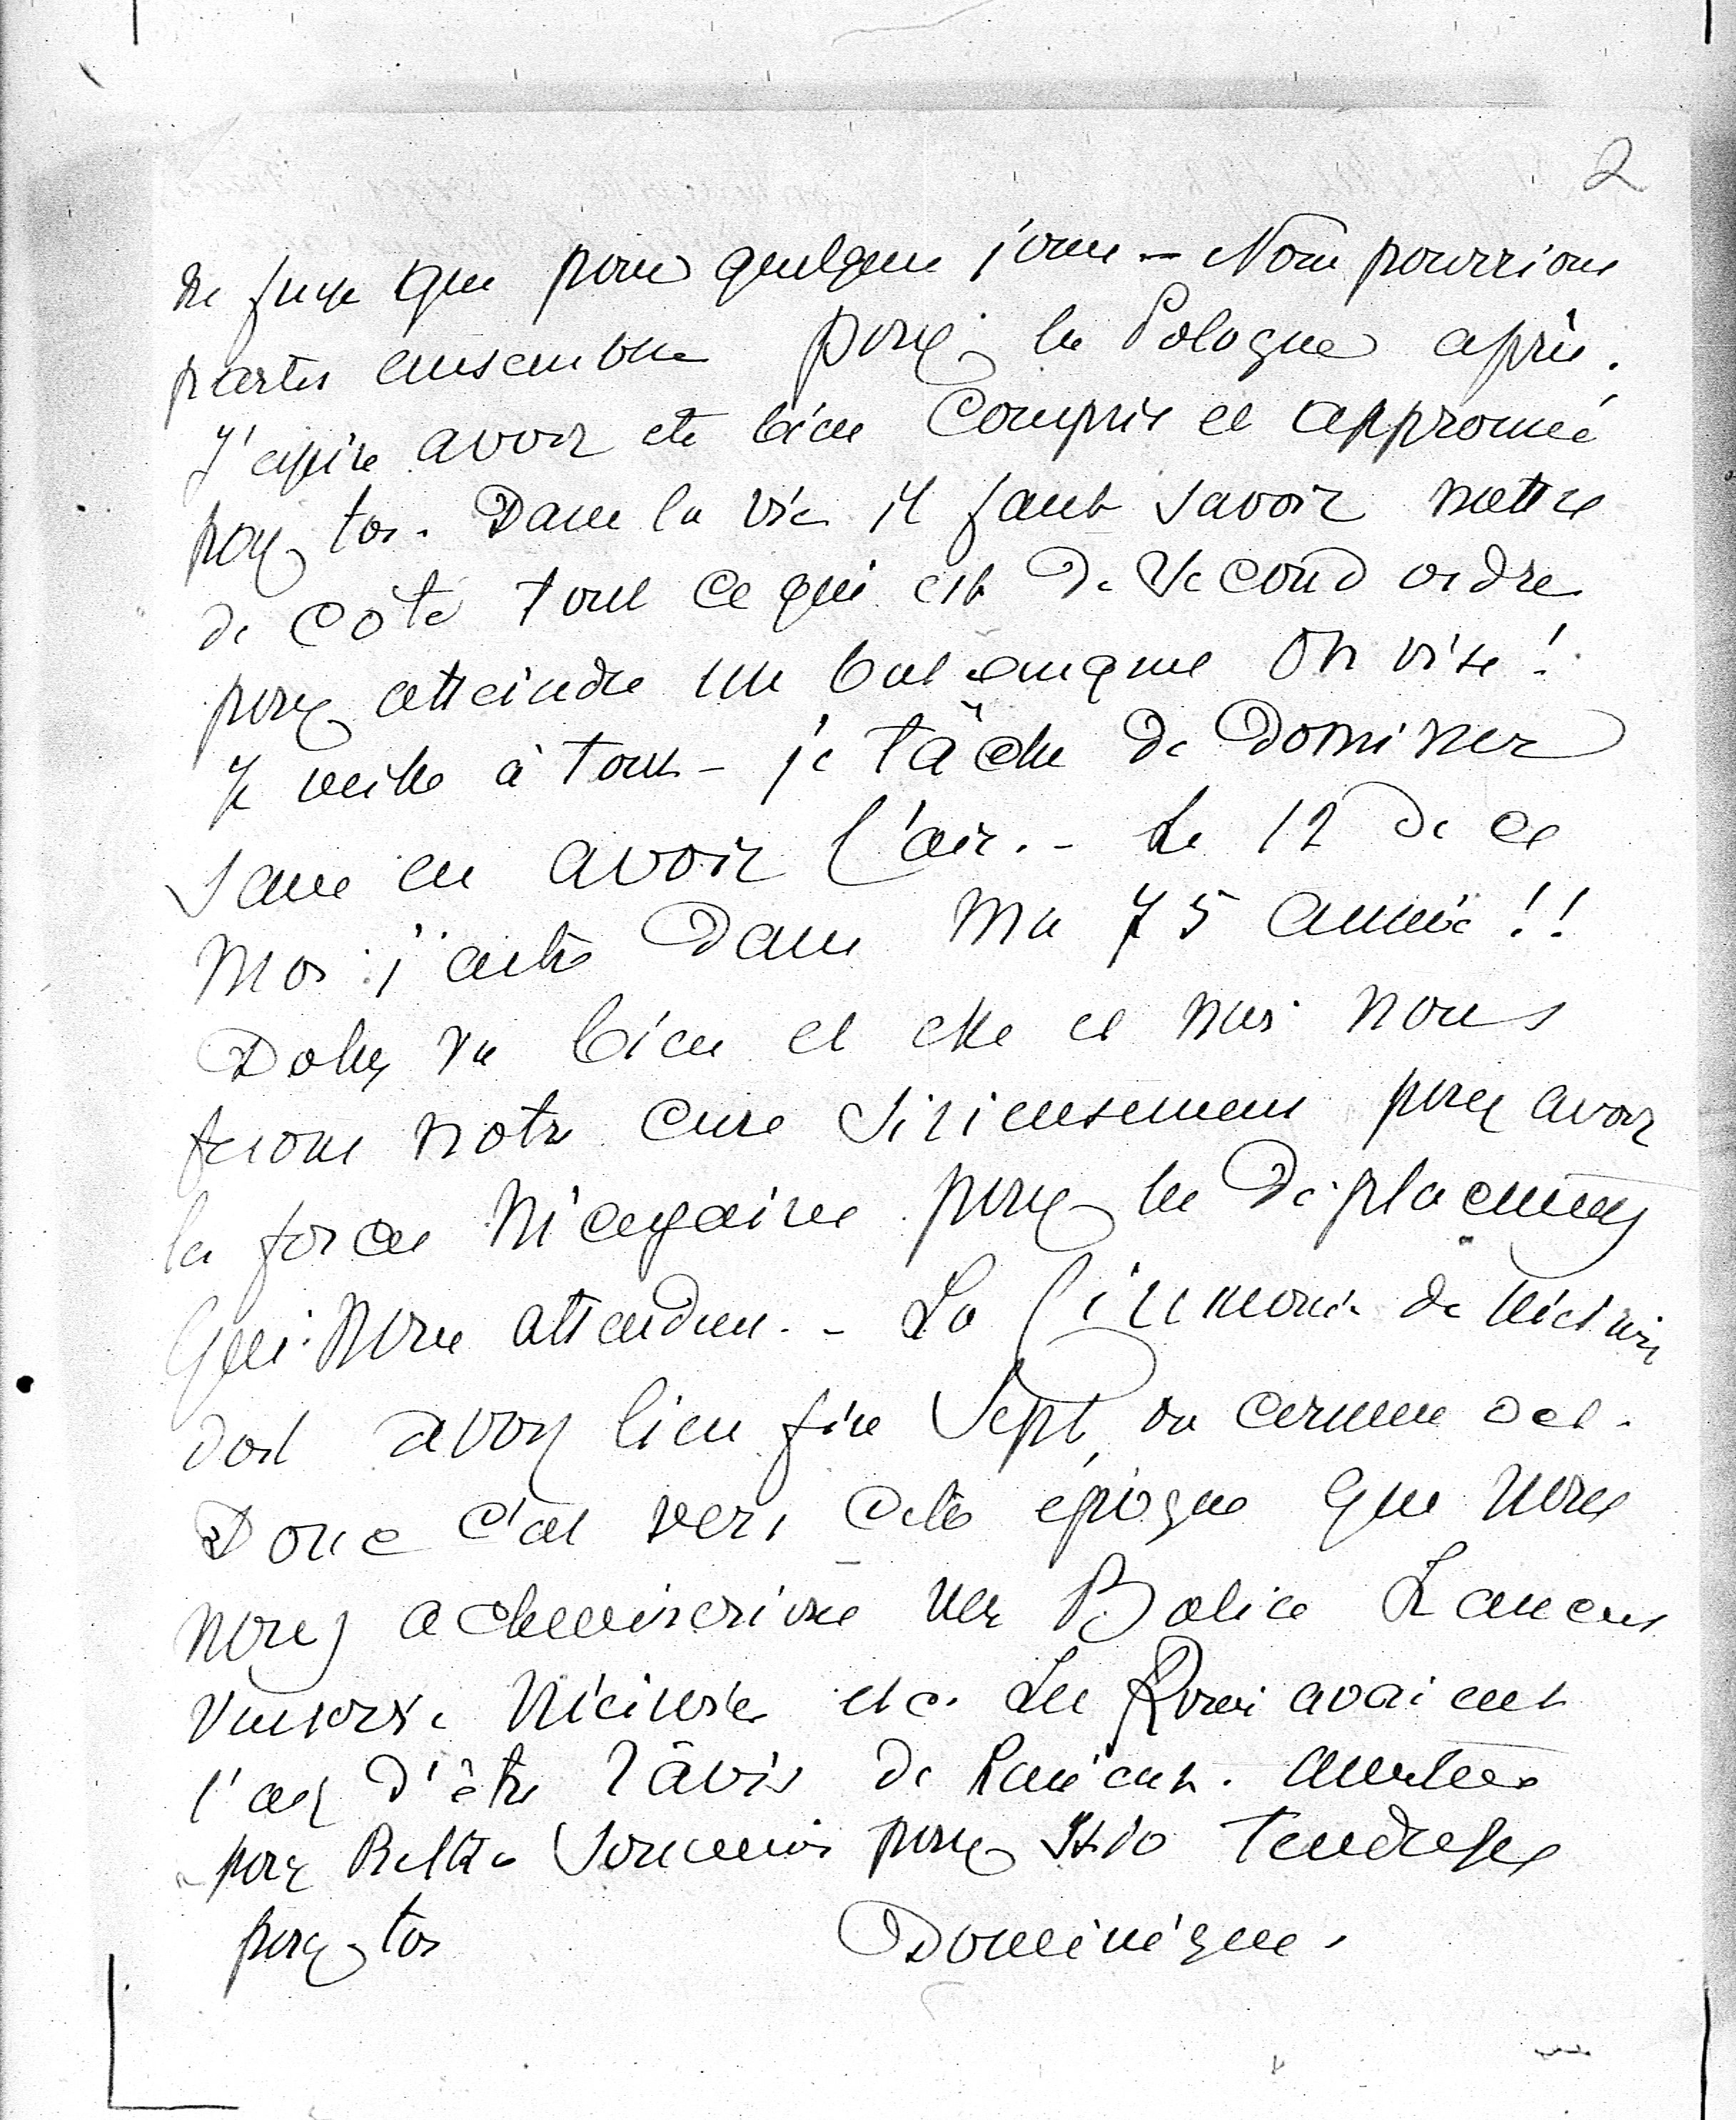 2
que pour quelques jours — Nous pourrions
partir ensemble pour la Pologne après.
J'espère avoir été bien compris et approuvé
par toi. Dans la vie il faut savoir mettre
de côté tout ce qui est de second ordre
pour atteindre un but auquel on vise !
Je veille à tout — je tâche de dominer
sans en avoir l'air. - Le 12 de ce
mois j'entre dans ma 75 année !!
Dolly va bien et elle et moi nous
ferons notre cure sérieusement pour avoir
les forces nécessaires pour les déplacements
qui nous attendent. - La cérémonie de
doit avoir lieu fin Sept ou comme oct.
Donc c'est vers cette époque que nous
nous acheminerions vers Balice Lancut
Varsovie Nieśwież etc. Les avaient
l'air d'être ravis de Lancut.
pour Souvenir pour Tendresses
pour toi Dominique.